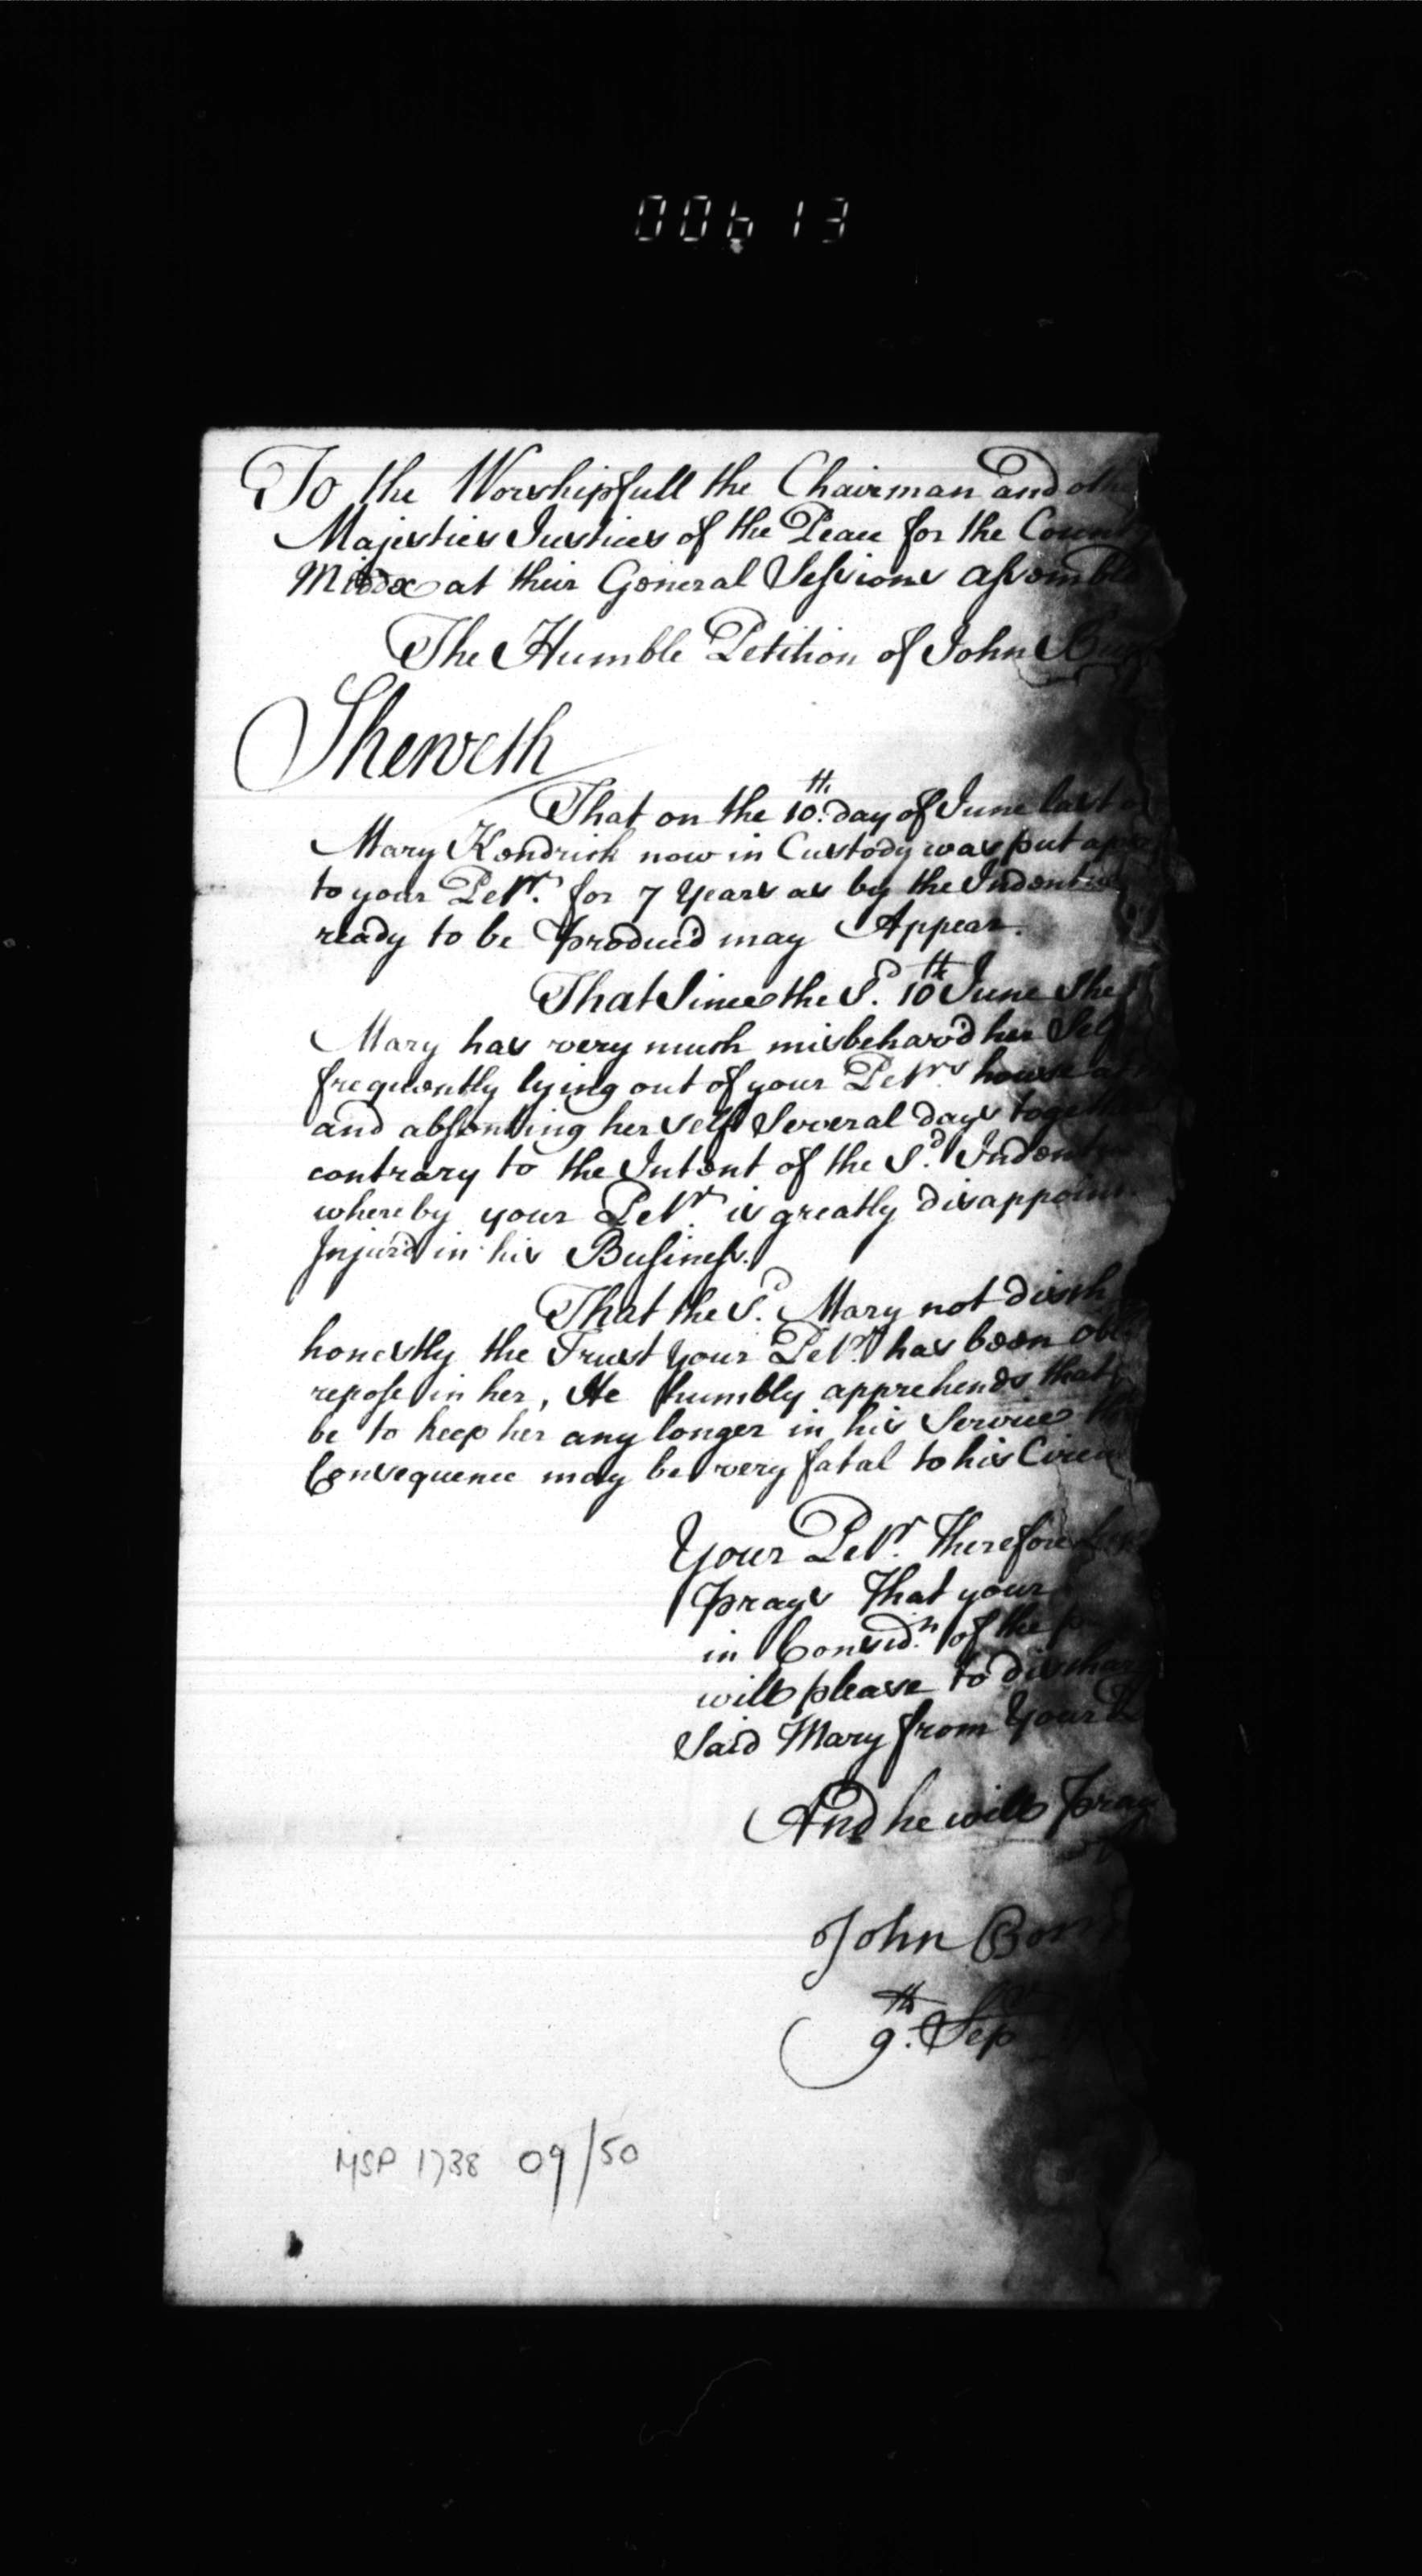 00613
To the Worshipfull the Chairman and othe
Majesties Justices of the Peace for the Count
Middx at their General Sessions assemble
The Humble Petition of John
Sheweth
That on the 10th. day of June last
Mary Kendrick now in Custody was put app
to your Petr. for 7 Years as by the Indentu
ready to be Produc'd may Appear.
That Since the Sd. 10th June She
Mary has very much misbehav'd her Self
frequently lying out of your Petrs house
and absenting her self Several days togethe
contrary to the Intent of the Sd. Indent
whereby your Petr. is greatly disappoint
Injur'd in his Business.
That the Sd. Mary not disch
honestly the Trust your Petr. has been obl
repose in her, He humbly apprehends that
be to keep her any longer in his Service the
Consequence may be very fatal to his Circu
Your Petr. Therefore
Prays That your
in Considn. of the p
will please to dischar
Said Mary from Your
And he will Pray
John Bo
9th. Sep
MSP 1738 09/50